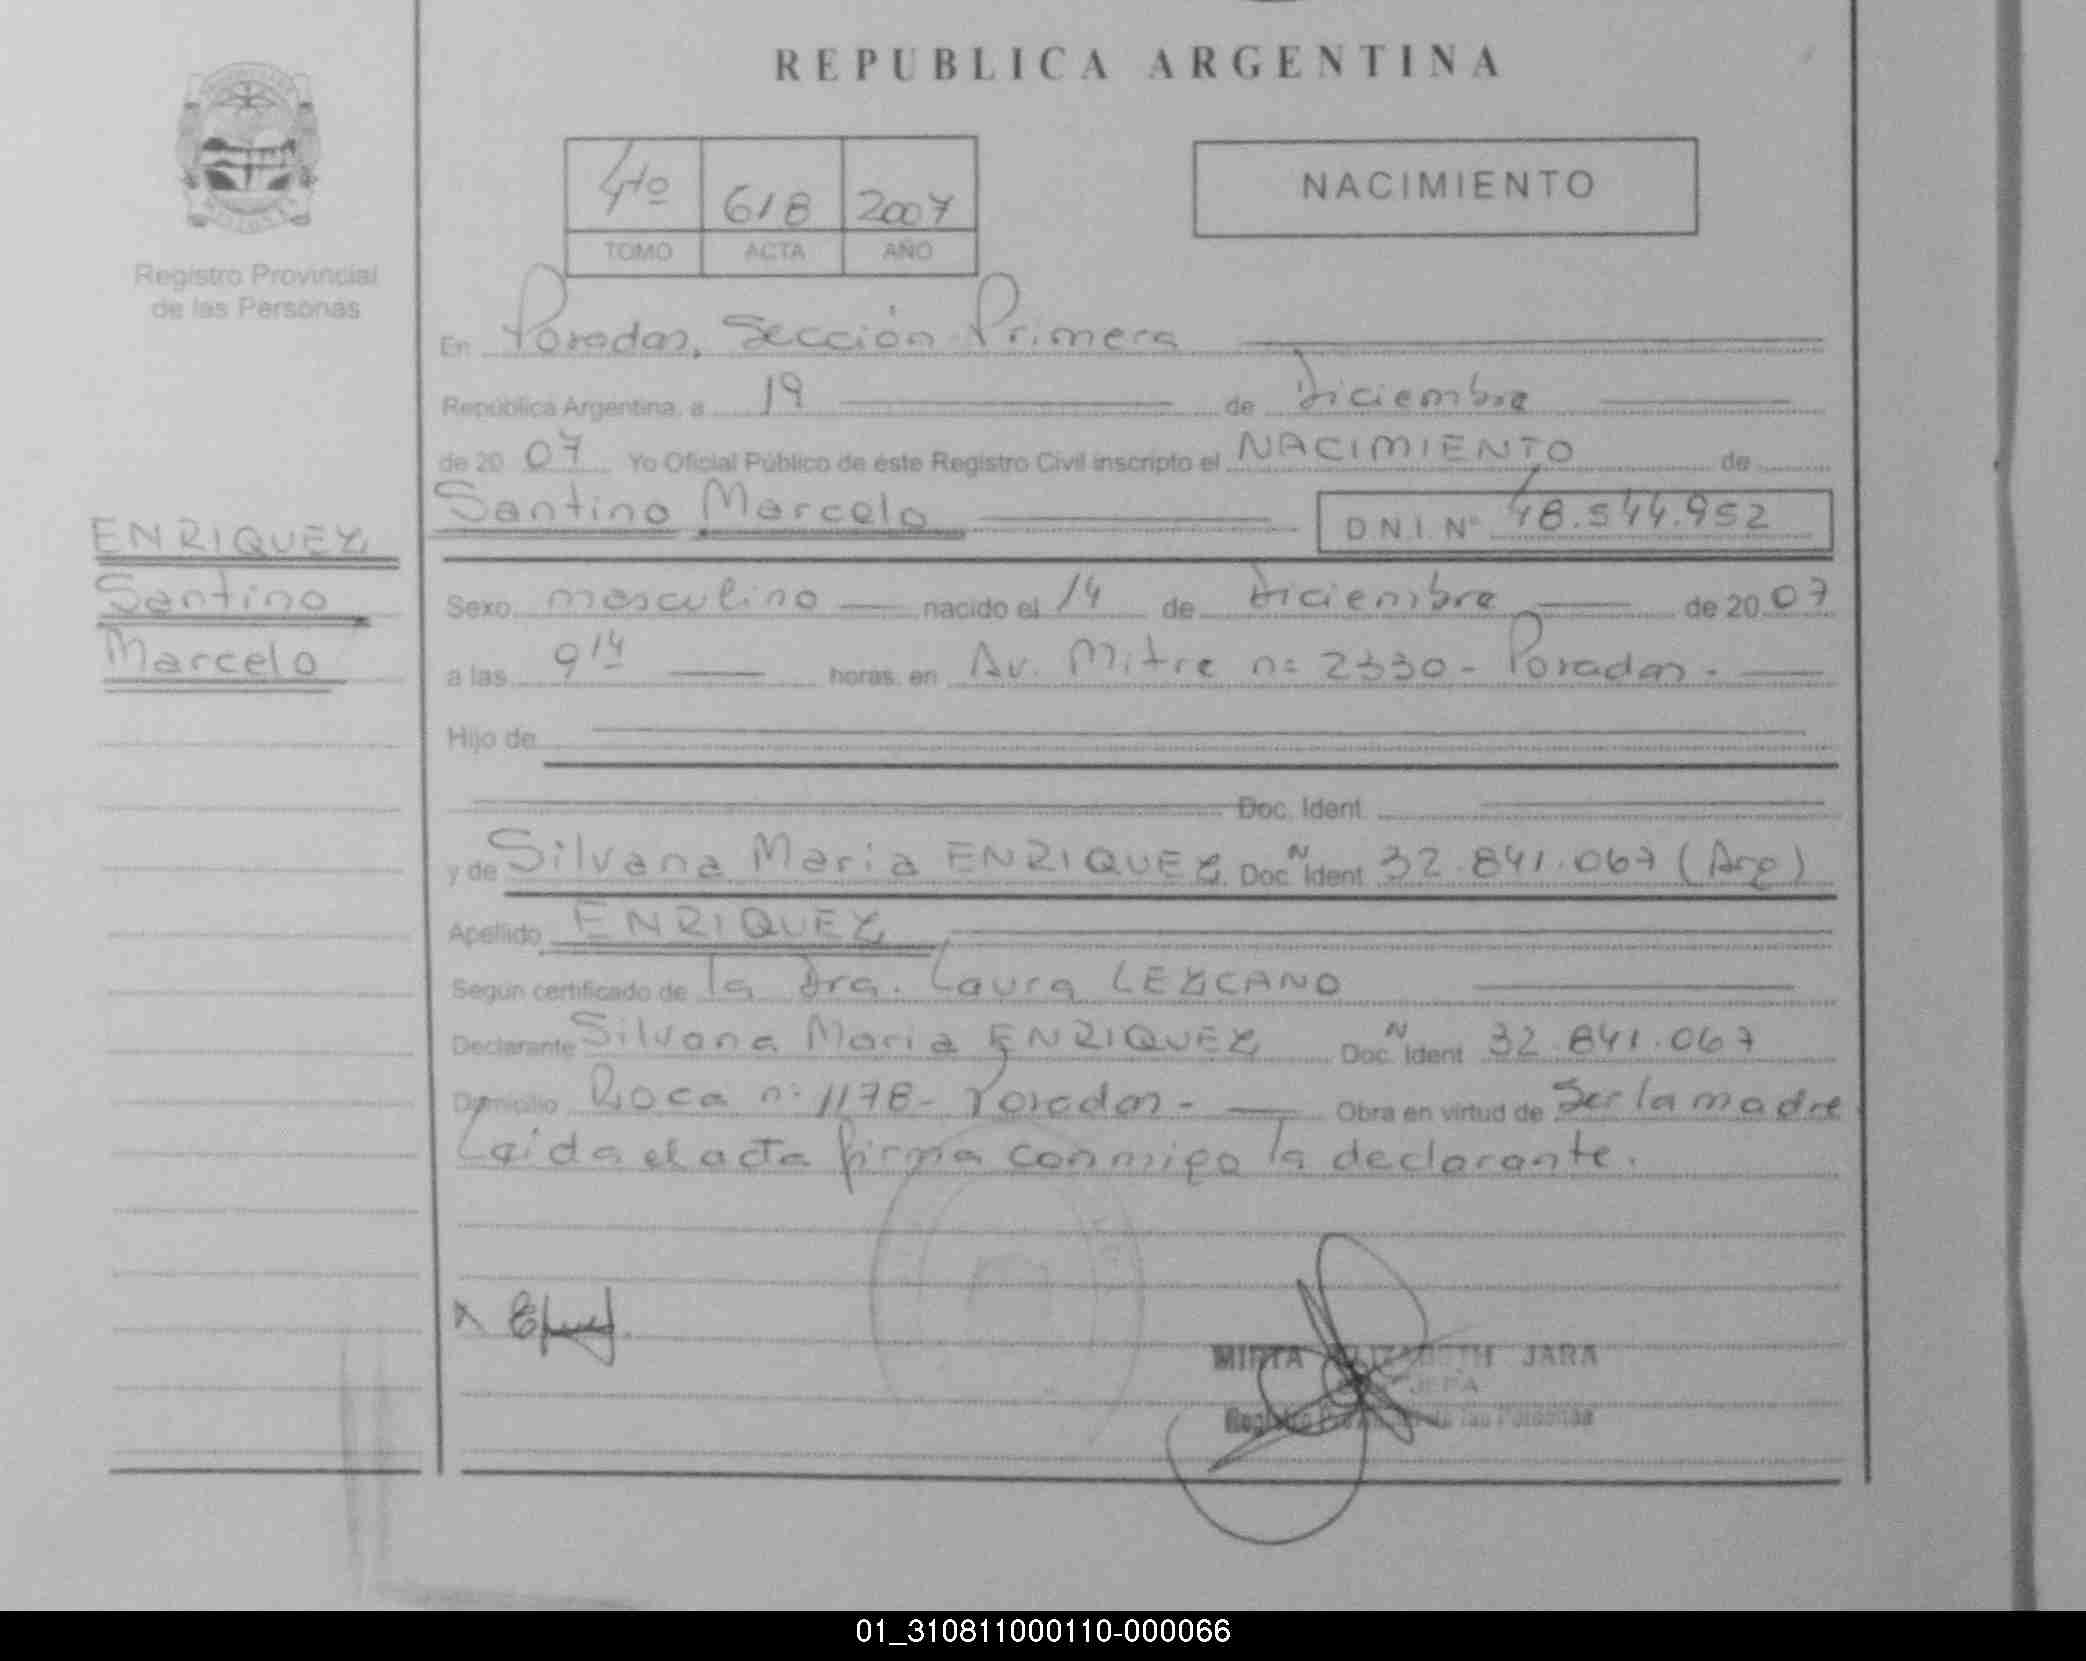 REPUBLICA ARGENTINA
4to 618 2007
TOMO ACTA AÑO
NACIMIENTO
Registro Provincial
de las Personas
ENRIQUEZ
Santino
Marcelo
En Posadas, Sección Primera
República Argentina, a 19 de Diciembre
de 20 07 Yo Oficial Público de éste Registro Civil inscripto el NACIMIENTO de
Santino Marcelo D.N.I. Nº 48.544.952
Sexo masculino nacido el 14 de Diciembre de 20 07
a las 9 14 horas. en Av. Mitre nº 2330 - Posadas -
Hijo de
Doc. Ident.
y de Silvana Maria ENRIQUEZ Doc. N Ident 32.841.067 (Arg)
Apellido ENRIQUEZ
Según certificado de la Dra. Laura LEZCANO
Declarante Silvana Maria ENRIQUEZ Doc. N Ident 32.841.067
Domicilio Roca nº 1178 - Posadas - Obra en virtud de Ser la madre
Leida el acta firma conmigo la declarante.
X
MIRTA ELIZABETH JARA
JEFA
Registro Provincial de las Personas
01_310811000110-000066